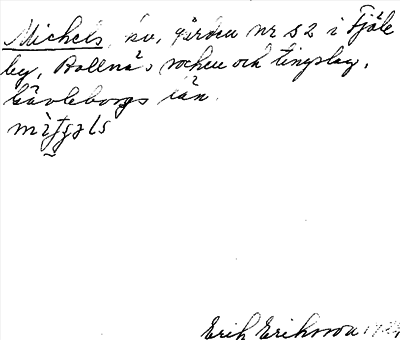 Michels, äv. gården nr 52 i Fjäle
by, Bollnäs socken och tingslag,
Gävleborgs län.
Erik Eriksson